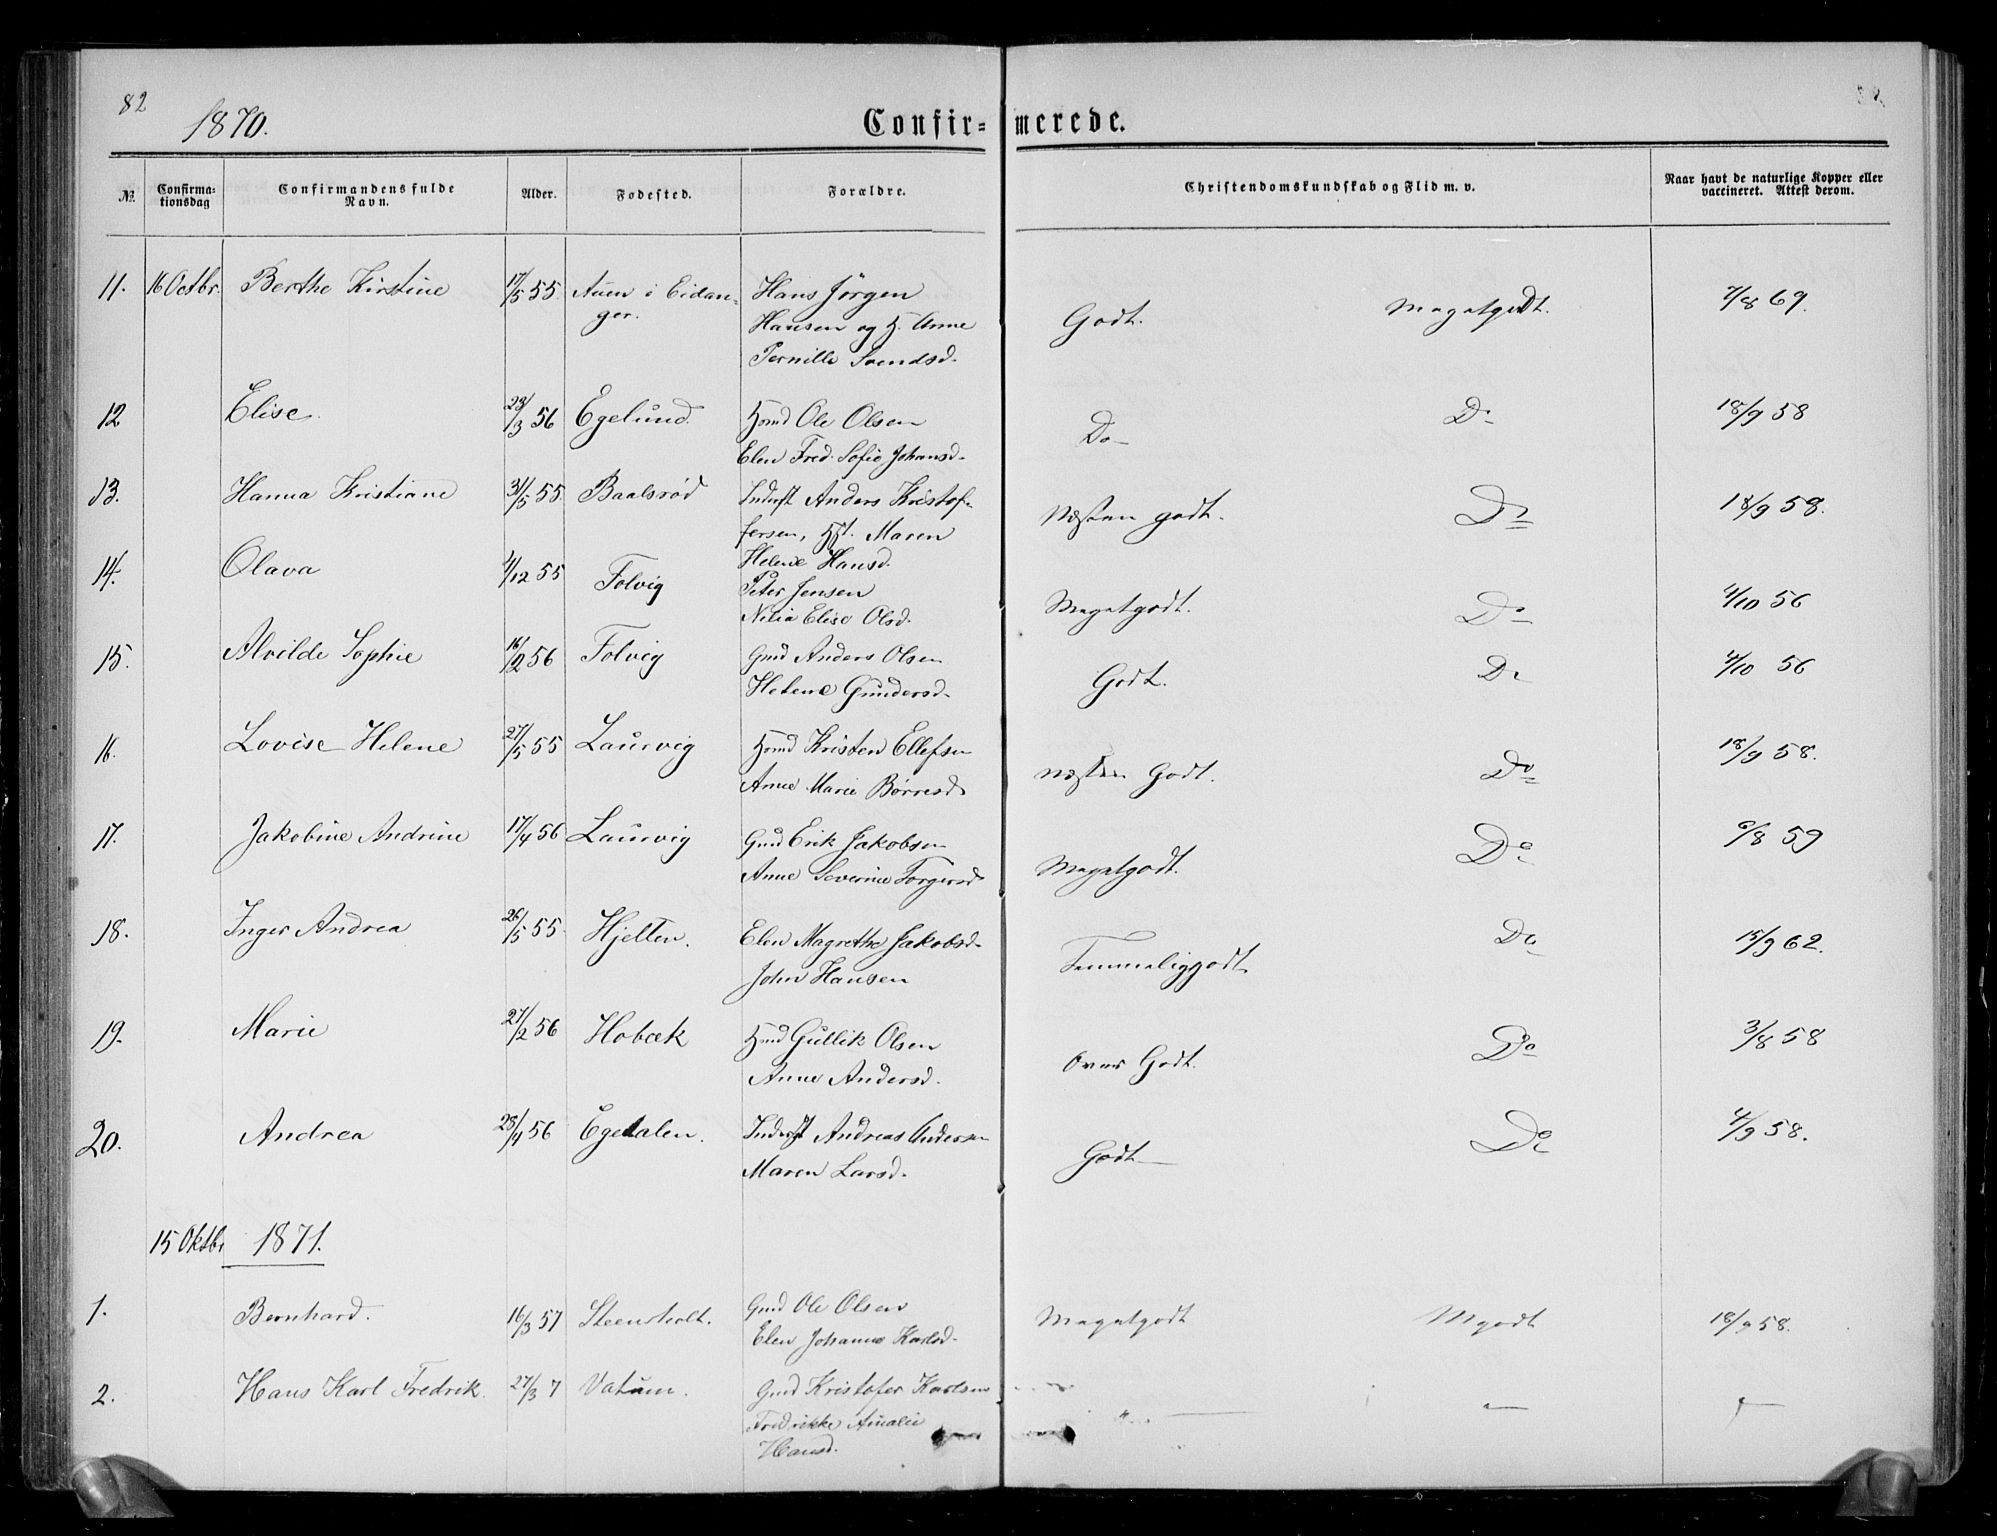 82
1870.
Confir-merede.
№
Confirma-tionsdag
Confirmandens fulde Navn.
Alder.
Fødested.
Forældre.
Christendomskundskab og Flid m. v.
Naar havt de naturlige Kopper eller vaccineret. Attest derom.
11. 16 Octbr. Berthe Kirstine 17/5 55 Auen i Eidan- Hans Jørgen
ger. Hansen og H. Anne Godt. Megetgodt. 7/8 69.
Pernille Svendsd.
12 Elise. 23/3 56 Egelund. Hmd Ole Olsen Do D- 18/9 58
Elen Fred. Sofie Johansd.
13. Hanna Kristiane 31/5 55. Baalsrød Inderst Anders Kristof-
fersen, Maren Næsten godt. Do 18/9 58.
Helene Hansd.
14. Olava 4/12 55 Folvig Peter Jensen Megetgodt. Do 4/10 56
Elise Olsd.
15. Alvilde Sophie 16/2 56 Folvig Gmd Anders Olsen Godt. Do 4/10 56
Helene Gundersd.
16. Lovise Helene 27/5 55 Laurvig Hmd Kristen Ellefsen næsten Godt. Do 18/9 58.
Anne Marie Børresd
17. Jakobine Andrine 17/4 56 Laurvig Gmd Erik Jakobsen Megetgodt. Do 6/8 59
Anne Severine Torgersd
18. Inger Andrea 26/5 55 Hjelten. Elen Magrethe Jakobsd. Temmeliggodt. Do 15/9 62.
John Hansen
19. Marie 27/2 56 Hobæk Hmd Gullik Olsen Over Godt. Do 3/8 58
Anne Andersd.
20. Andrea 28/4 56 Egedalen. Inderst Andreas Andersen Godt Do 4/9 58.
Maren Larsd.
15 Oktbr 1871.
1. Bernhard. 16/3 57 Steensholt. Gmd Ole Olsen Megetgodt Mgodt 18/9 58.
Elen Johanne Karlsd.
2. Hans Karl Fredrik. 27/3 7 Vatum. Gmd Kristofer Karlsen
Fredrikke Amalie
Hansd.